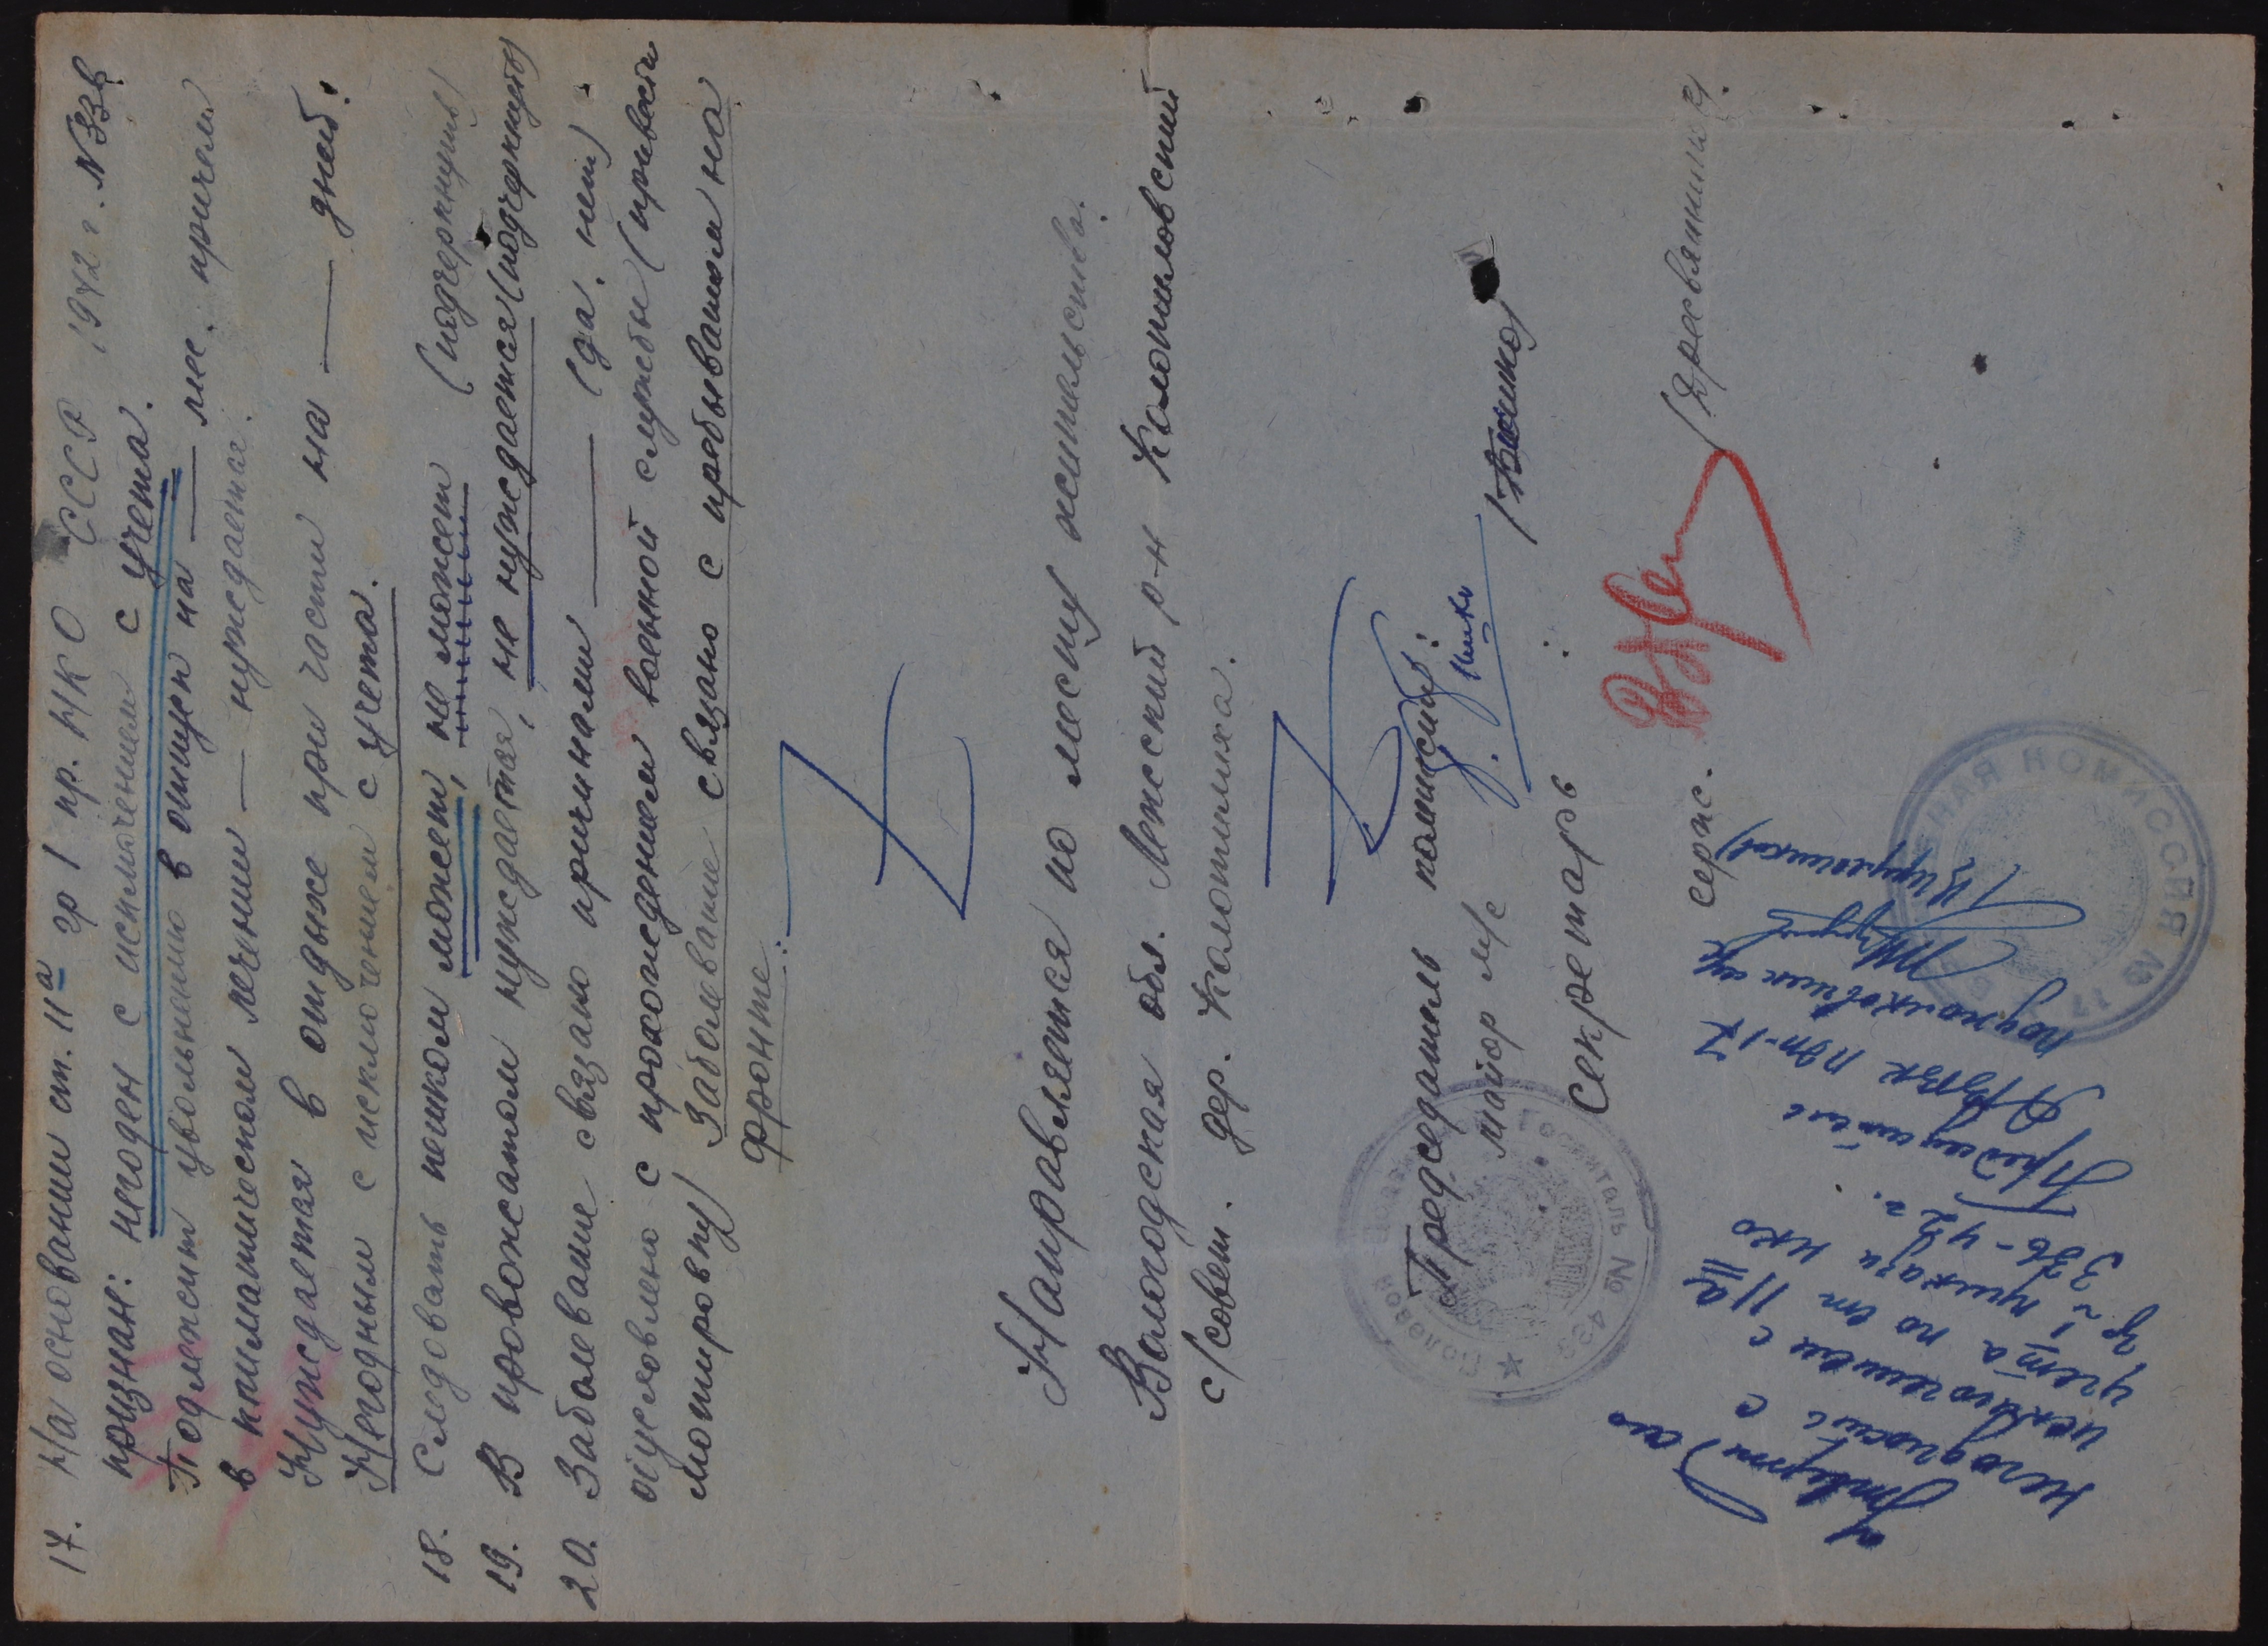 17. На основании ст. 11а гр 1 пр. НКО СССР 1942 г. №336
признан: негоден с исключением с учета.
Подлежит увольнению в отпуск на — мес. причем
в климатическом лечении — нуждается.
Нуждается в отдыхе при части на — дней.
Негодным с исключением с учета.
18. Следовать пешком может, не может (подчеркнуть)
19. В провожатом нуждается, не нуждается (подчеркнуть)
20. Заболевание связано причинами — (да, нет)
обусловлено с прохождением военной службы (привести
мотировку) Заболевание связано с пребыванием на
фронте:
Направляется по месту жительства.
Вологодская обл. Ленский р-н
с/совет. дер.
Председатель комиссии:
майор м/с
Секретарь :
серж.
госпиталь № 433
Утверждаю
негодность с
исключением с
учета по ст 11а
гр 1 приказа НКО
336-42 г.
Председатель
подполковник м/с
КОМИССИЯ № 17